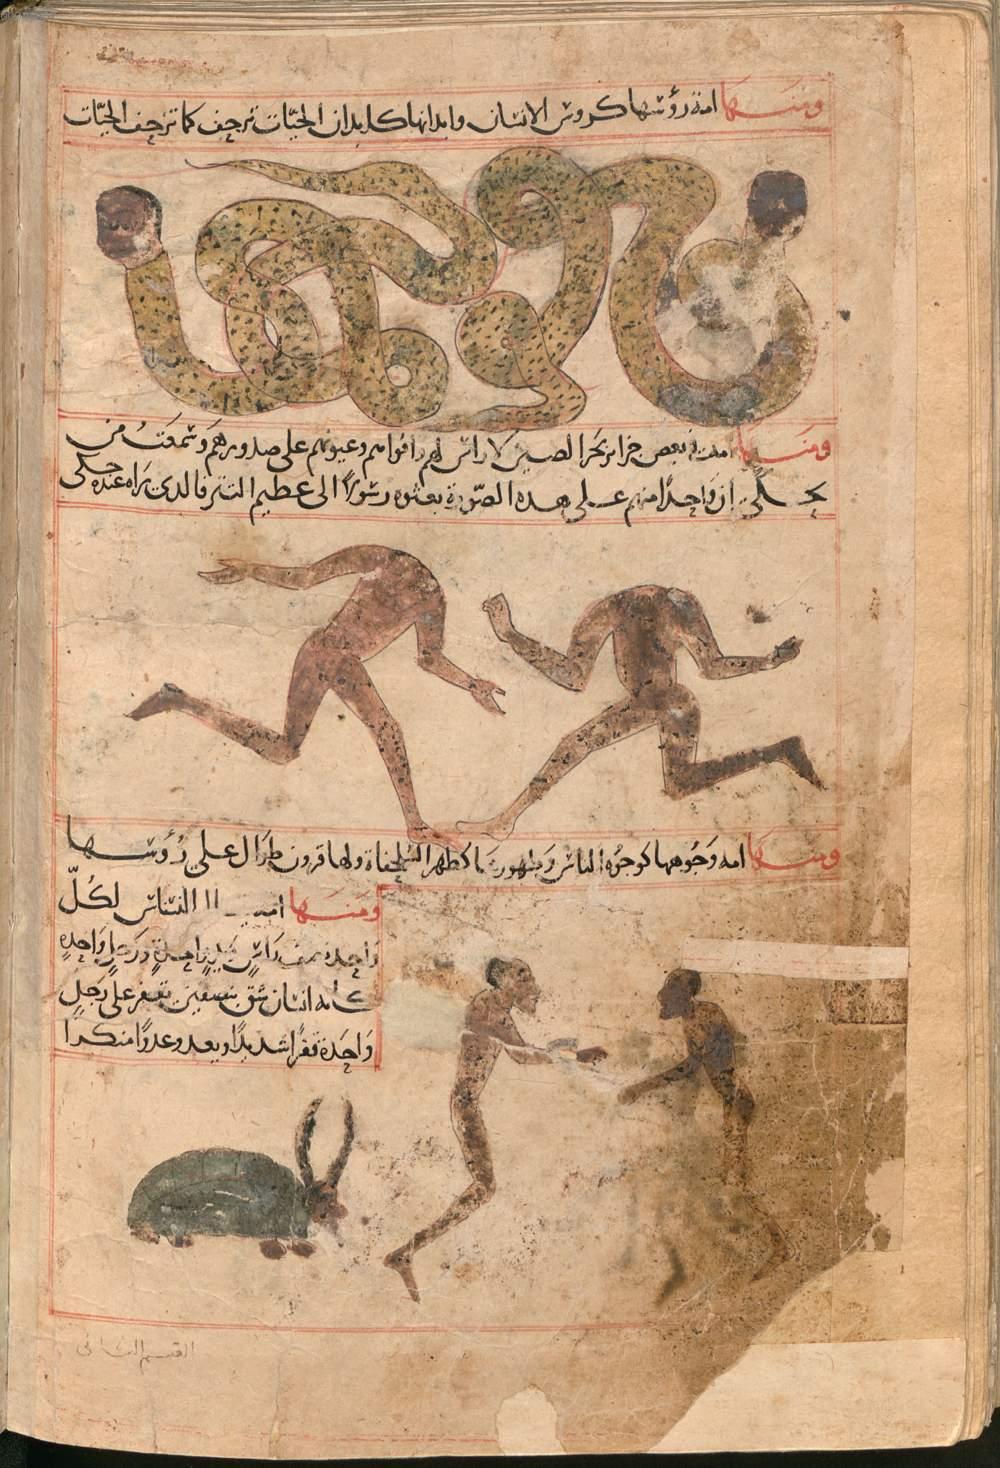 ومنها امة رؤسها كروس الانسان وابدانها كابدان الحيّات ترجف كما ترجف الحيّات
ومنها امة في بعض جزاير بحر الصين لا راس لهم وافواههم وعيونهم على صدورهم وسمعتُ من
ان واحدًا منهم على هذه الصّورة بعثوه رسولًا الى عظيم التتر فالذي رآه عنده حكى
ومنها امة وجوهها كوجوه الناس وظهورها كظهر السلحفاة ولها قرون طوال على رُؤسها
ومنها امة النسناس لكُلّ
واحدة نصف راسٍ ويدٍ واحدةٍ ورجلٍ واحدةٍ
كأنه انسان شق بنصفين يقفز على رجلٍ
واحدة قفزًا شديدًا ويعدو عدوًا منكرًا
القسم الثاني